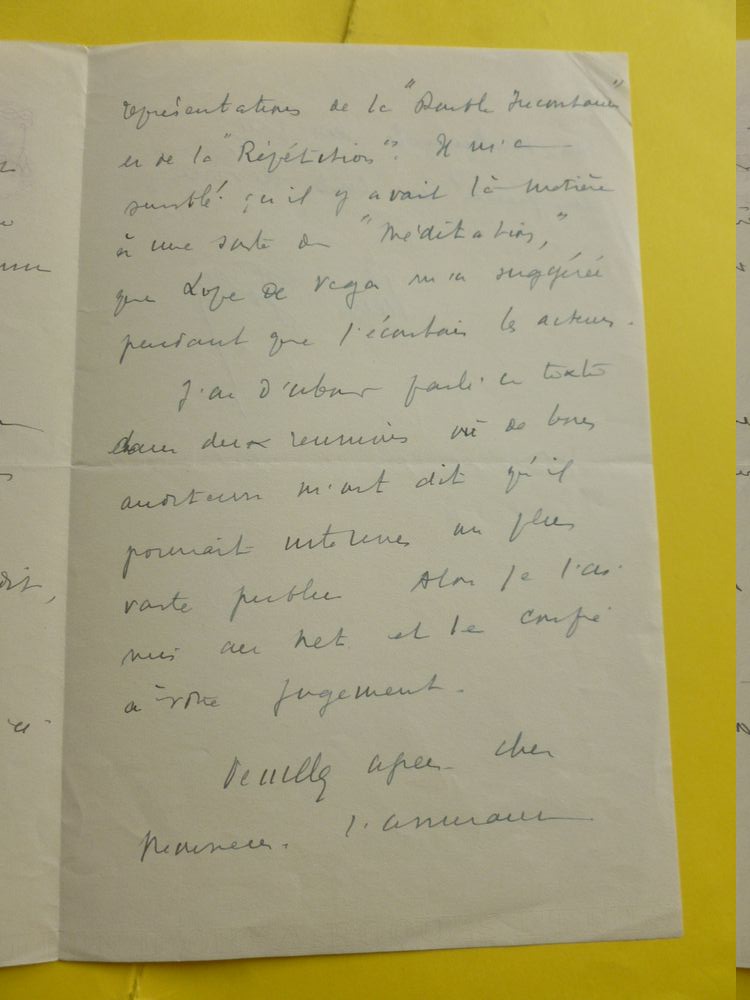 représentations de la "Double Inconstance"
et de la "Répétition". Il m'a
semblé qu'il y avait là matière
à une sorte de "Méditation,"
que Lope de Vega m'a suggérée
pendant que j'écoutais les acteurs.
J'ai d'abord parlé ce texte
dans deux réunions où de bons
auditeurs m'ont dit qu'il
pourrait intéresser un plus
vaste public. Alors je l'ai
mis au net et le confie
à votre jugement.
Veuillez agréer cher
Monsieur, l'assurance